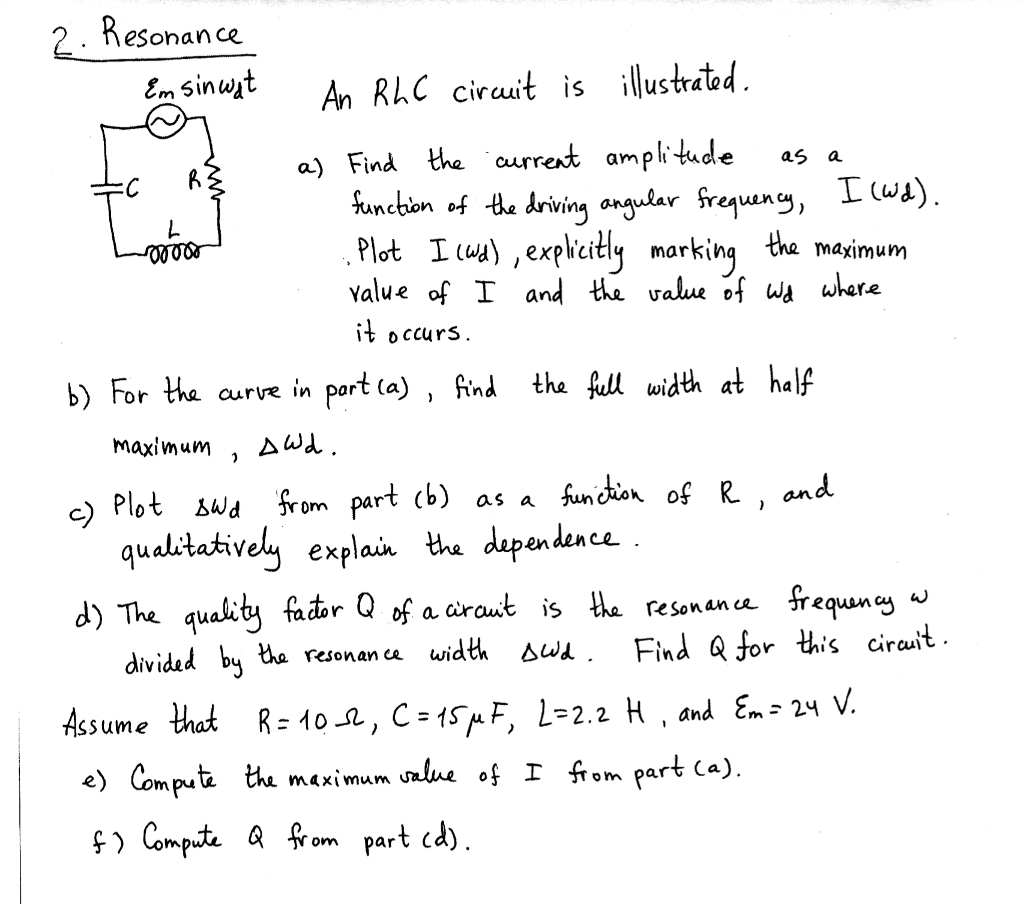 2. Resonance
Ɛm sin ωdt
An RLC circuit is illustrated.
C
R
L
a) Find the current amplitude as a
function of the driving angular frequency, I(ωd).
Plot I(ωd), explicitly marking the maximum
value of I and the value of ωd where
it occurs.
b) For the curve in part (a), find the full width at half
maximum, Δωd.
c) Plot Δωd from part (b) as a function of R, and
qualitatively explain the dependence.
d) The quality factor Q of a circuit is the resonance frequency ω
divided by the resonance width Δωd. Find Q for this circuit.
Assume that R=10 Ω, C=15 μF, L=2.2 H, and Ɛm=24 V.
e) Compute the maximum value of I from part (a).
f) Compute Q from part (d).